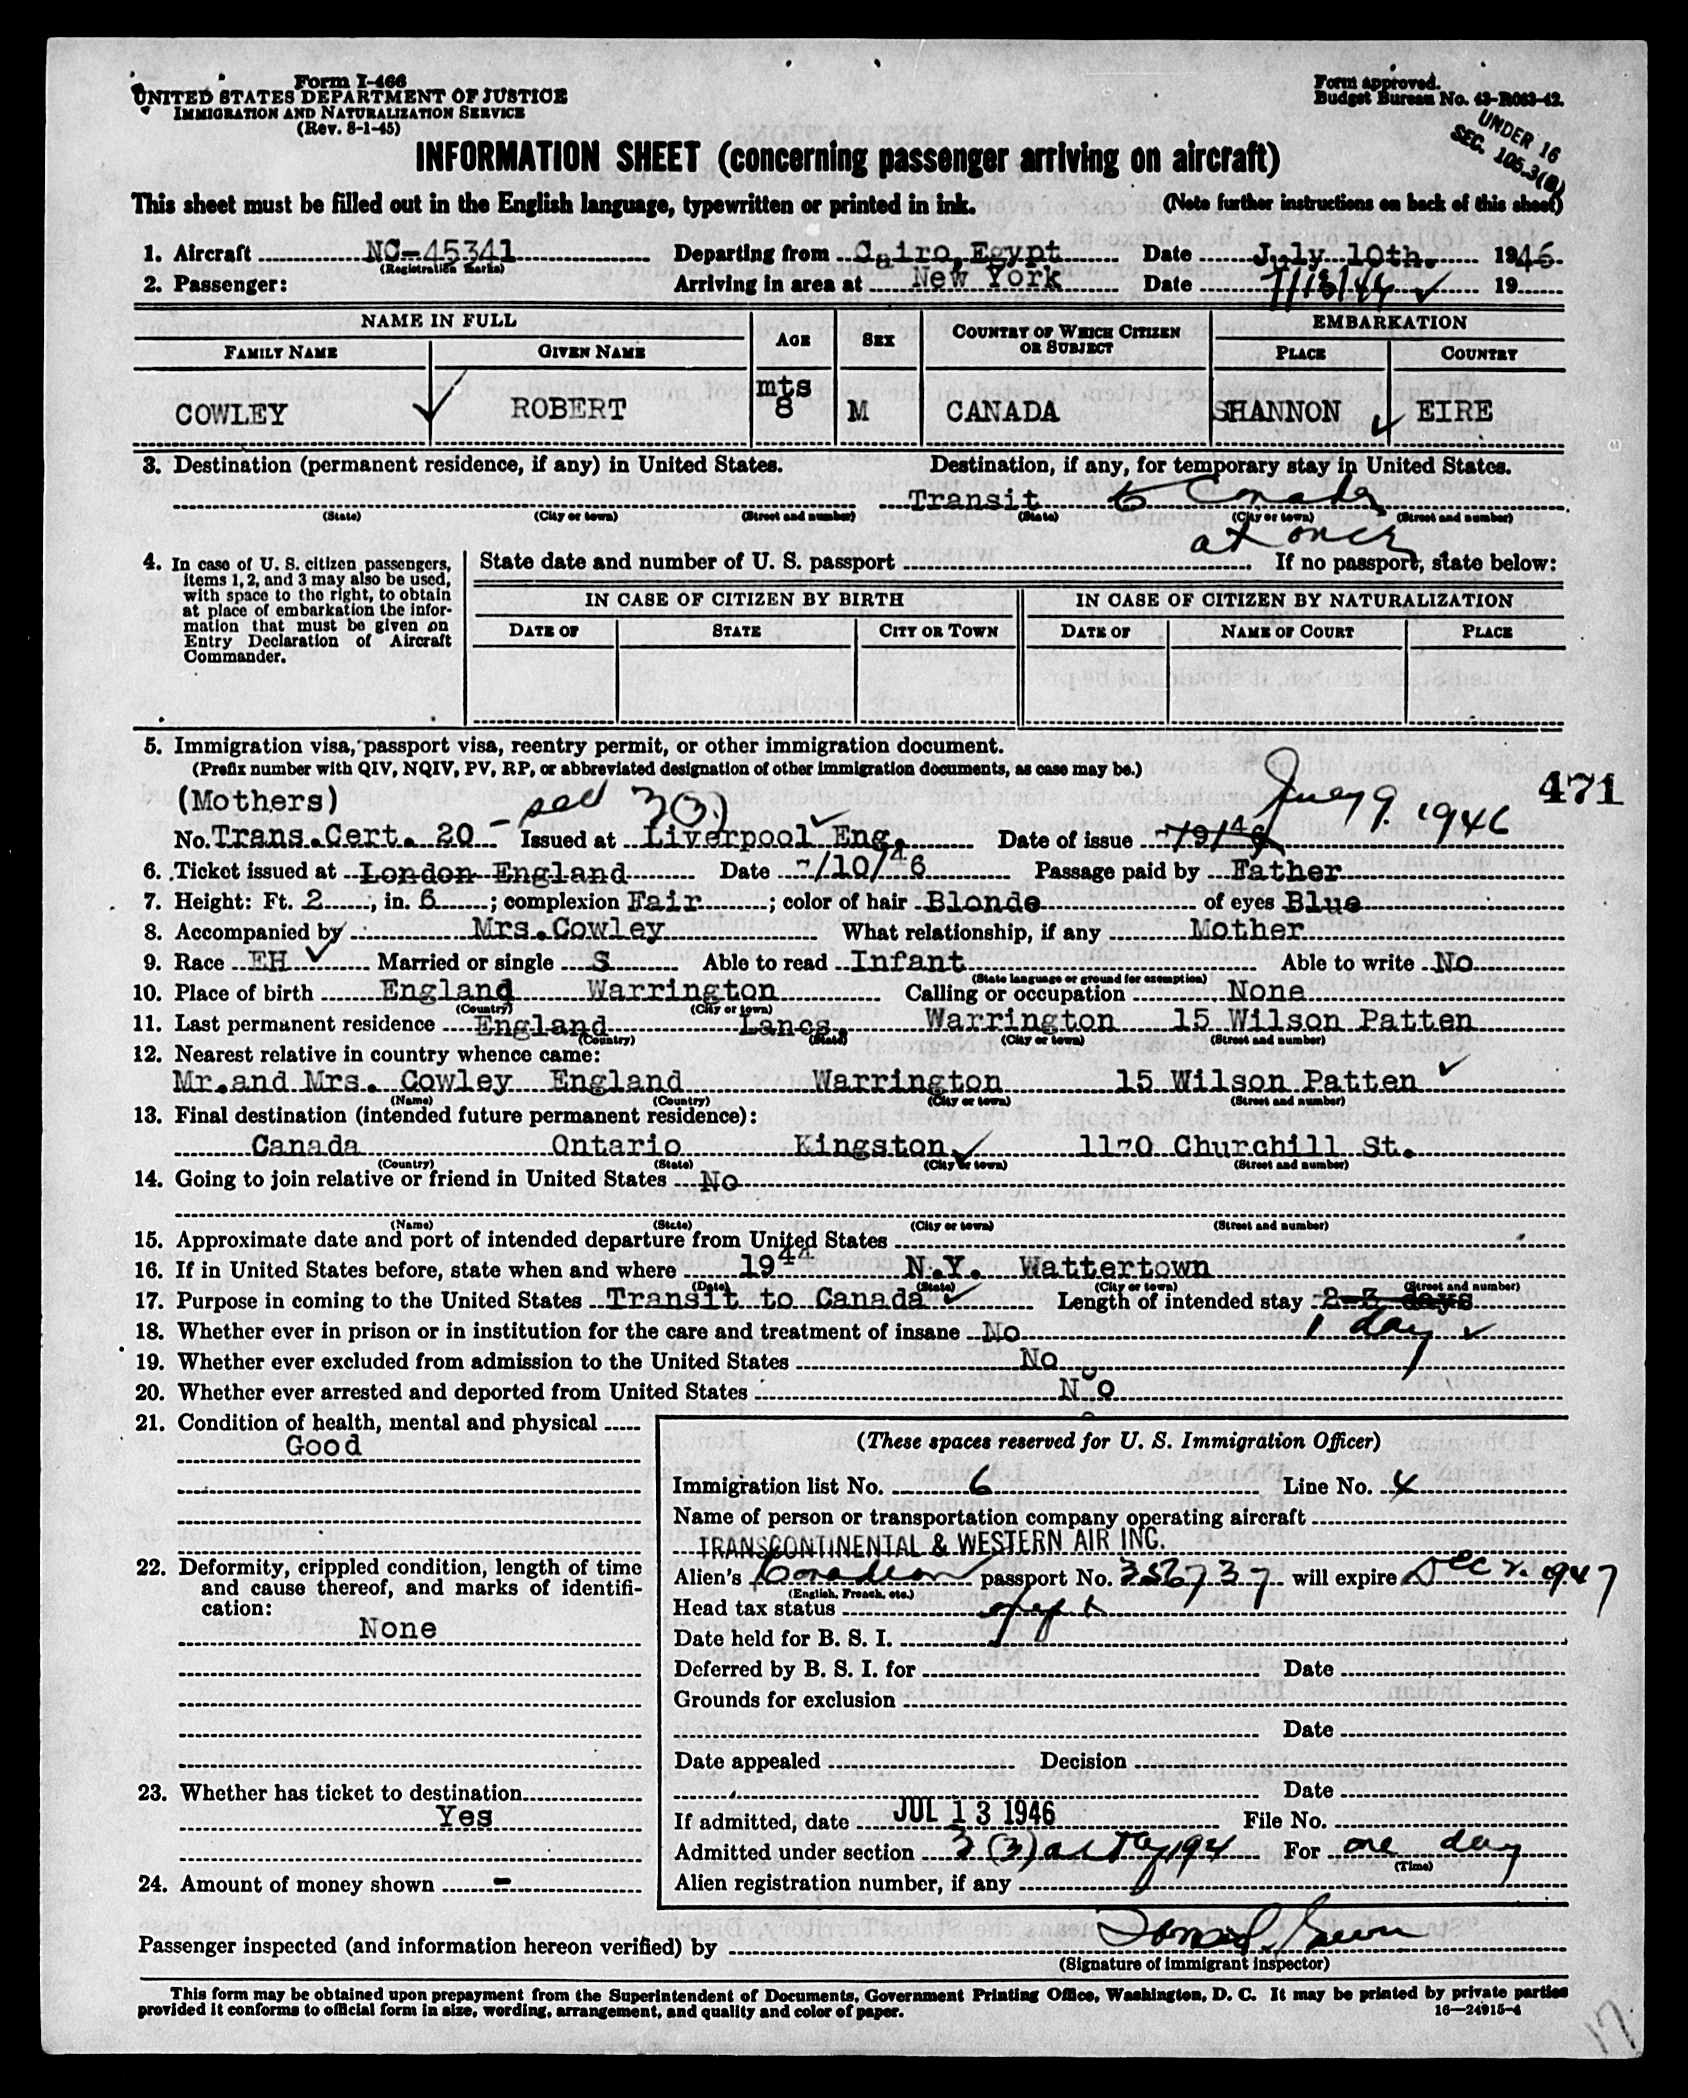 Form I-466
UNITED STATES DEPARTMENT OF JUSTICE
IMMIGRATION AND NATURALIZATION SERVICE
(Rev. 8-1-45)
Form approved.
Budget Bureau No. 43-R063-42.
UNDER 16
SEC. 105.3(a)
INFORMATION SHEET (concerning passenger arriving on aircraft)
This sheet must be filled out in the English language, typewritten or printed in ink. (Note further instructions on back of this sheet)
1. Aircraft NC-45341 Departing from Cairo, Egypt Date July 10th. 1946.
(Registration marks)
2. Passenger: Arriving in area at New York Date 7/13/46 19
NAME IN FULL AGE SEX COUNTRY OF WHICH CITIZEN OR SUBJECT EMBARKATION
FAMILY NAME GIVEN NAME PLACE COUNTRY
mts
COWLEY ROBERT 8 M CANADA SHANNON EIRE
3. Destination (permanent residence, if any) in United States. Destination, if any, for temporary stay in United States.
Transit to Canada
(State) (City or town) (Street and number) (State) (City or town) (Street and number)
at once
4. In case of U. S. citizen passengers, items 1, 2, and 3 may also be used, with space to the right, to obtain at place of embarkation the information that must be given on Entry Declaration of Aircraft Commander.
State date and number of U. S. passport If no passport, state below:
IN CASE OF CITIZEN BY BIRTH IN CASE OF CITIZEN BY NATURALIZATION
DATE OF STATE CITY OR TOWN DATE OF NAME OF COURT PLACE
5. Immigration visa, passport visa, reentry permit, or other immigration document.
(Prefix number with QIV, NQIV, PV, RP, or abbreviated designation of other immigration documents, as case may be.)
471
(Mothers) 3(3) July 9. 1946
No. Trans.Cert. 20 - Issued at Liverpool Eng. Date of issue 7/9/46
6. Ticket issued at London England Date 7/10/46 Passage paid by Father
7. Height: Ft. 2, in. 6; complexion Fair; color of hair Blonde of eyes Blue
8. Accompanied by Mrs.Cowley What relationship, if any Mother
9. Race EH Married or single S Able to read Infant Able to write No
(State language or ground for exemption)
10. Place of birth England Warrington Calling or occupation None
(Country) (City or town)
11. Last permanent residence England Lancs. Warrington 15 Wilson Patten
(Country) (State) (City or town) (Street and number)
12. Nearest relative in country whence came:
Mr.and Mrs. Cowley England Warrington 15 Wilson Patten
(Name) (Country) (City or town) (Street and number)
13. Final destination (intended future permanent residence):
Canada Ontario Kingston 1170 Churchill St.
(Country) (State) (City or town) (Street and number)
14. Going to join relative or friend in United States No
(Name) (State) (City or town) (Street and number)
15. Approximate date and port of intended departure from United States
16. If in United States before, state when and where 1944 N.Y. Wattertown
(Date) (State) (City or town) (Street and number)
17. Purpose in coming to the United States Transit to Canada Length of intended stay 2-3 days
1 day
18. Whether ever in prison or in institution for the care and treatment of insane No
19. Whether ever excluded from admission to the United States No
20. Whether ever arrested and deported from United States No
21. Condition of health, mental and physical
Good
22. Deformity, crippled condition, length of time and cause thereof, and marks of identification:
None
23. Whether has ticket to destination
Yes
24. Amount of money shown -
(These spaces reserved for U. S. Immigration Officer)
Immigration list No. 6 Line No. 4
Name of person or transportation company operating aircraft
TRANSCONTINENTAL & WESTERN AIR INC.
Alien's Canadian passport No. 356737 will expire Dec 2. 1947
(English, French, etc.)
Head tax status
Date held for B. S. I.
Deferred by B. S. I. for Date
Grounds for exclusion
Date
Date appealed Decision
Date
If admitted, date JUL 13 1946 File No.
Admitted under section 3(3) For one day
(Time)
Alien registration number, if any
Passenger inspected (and information hereon verified) by
(Signature of immigrant inspector)
This form may be obtained upon prepayment from the Superintendent of Documents, Government Printing Office, Washington, D. C. It may be printed by private parties
provided it conforms to official form in size, wording, arrangement, and quality and color of paper. 16—24915-4
17